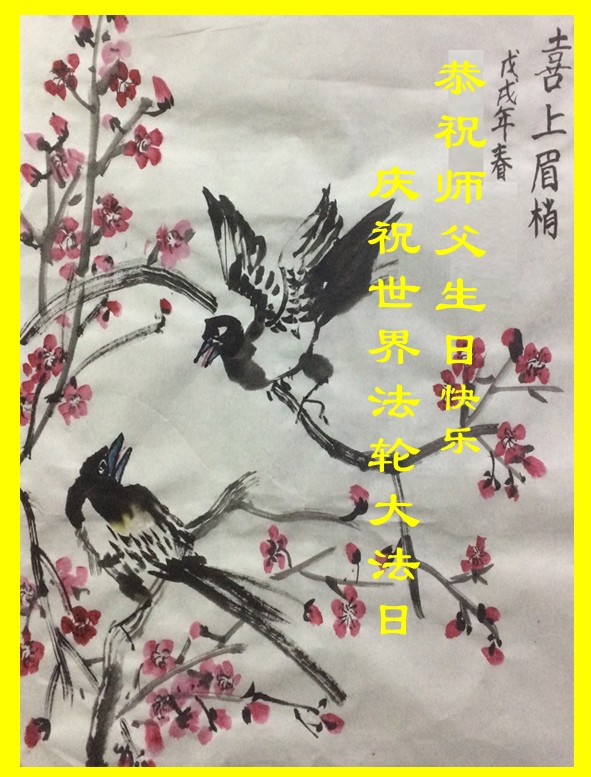 喜上眉梢
戊戌年春
恭祝师父生日快乐
庆祝世界法轮大法日